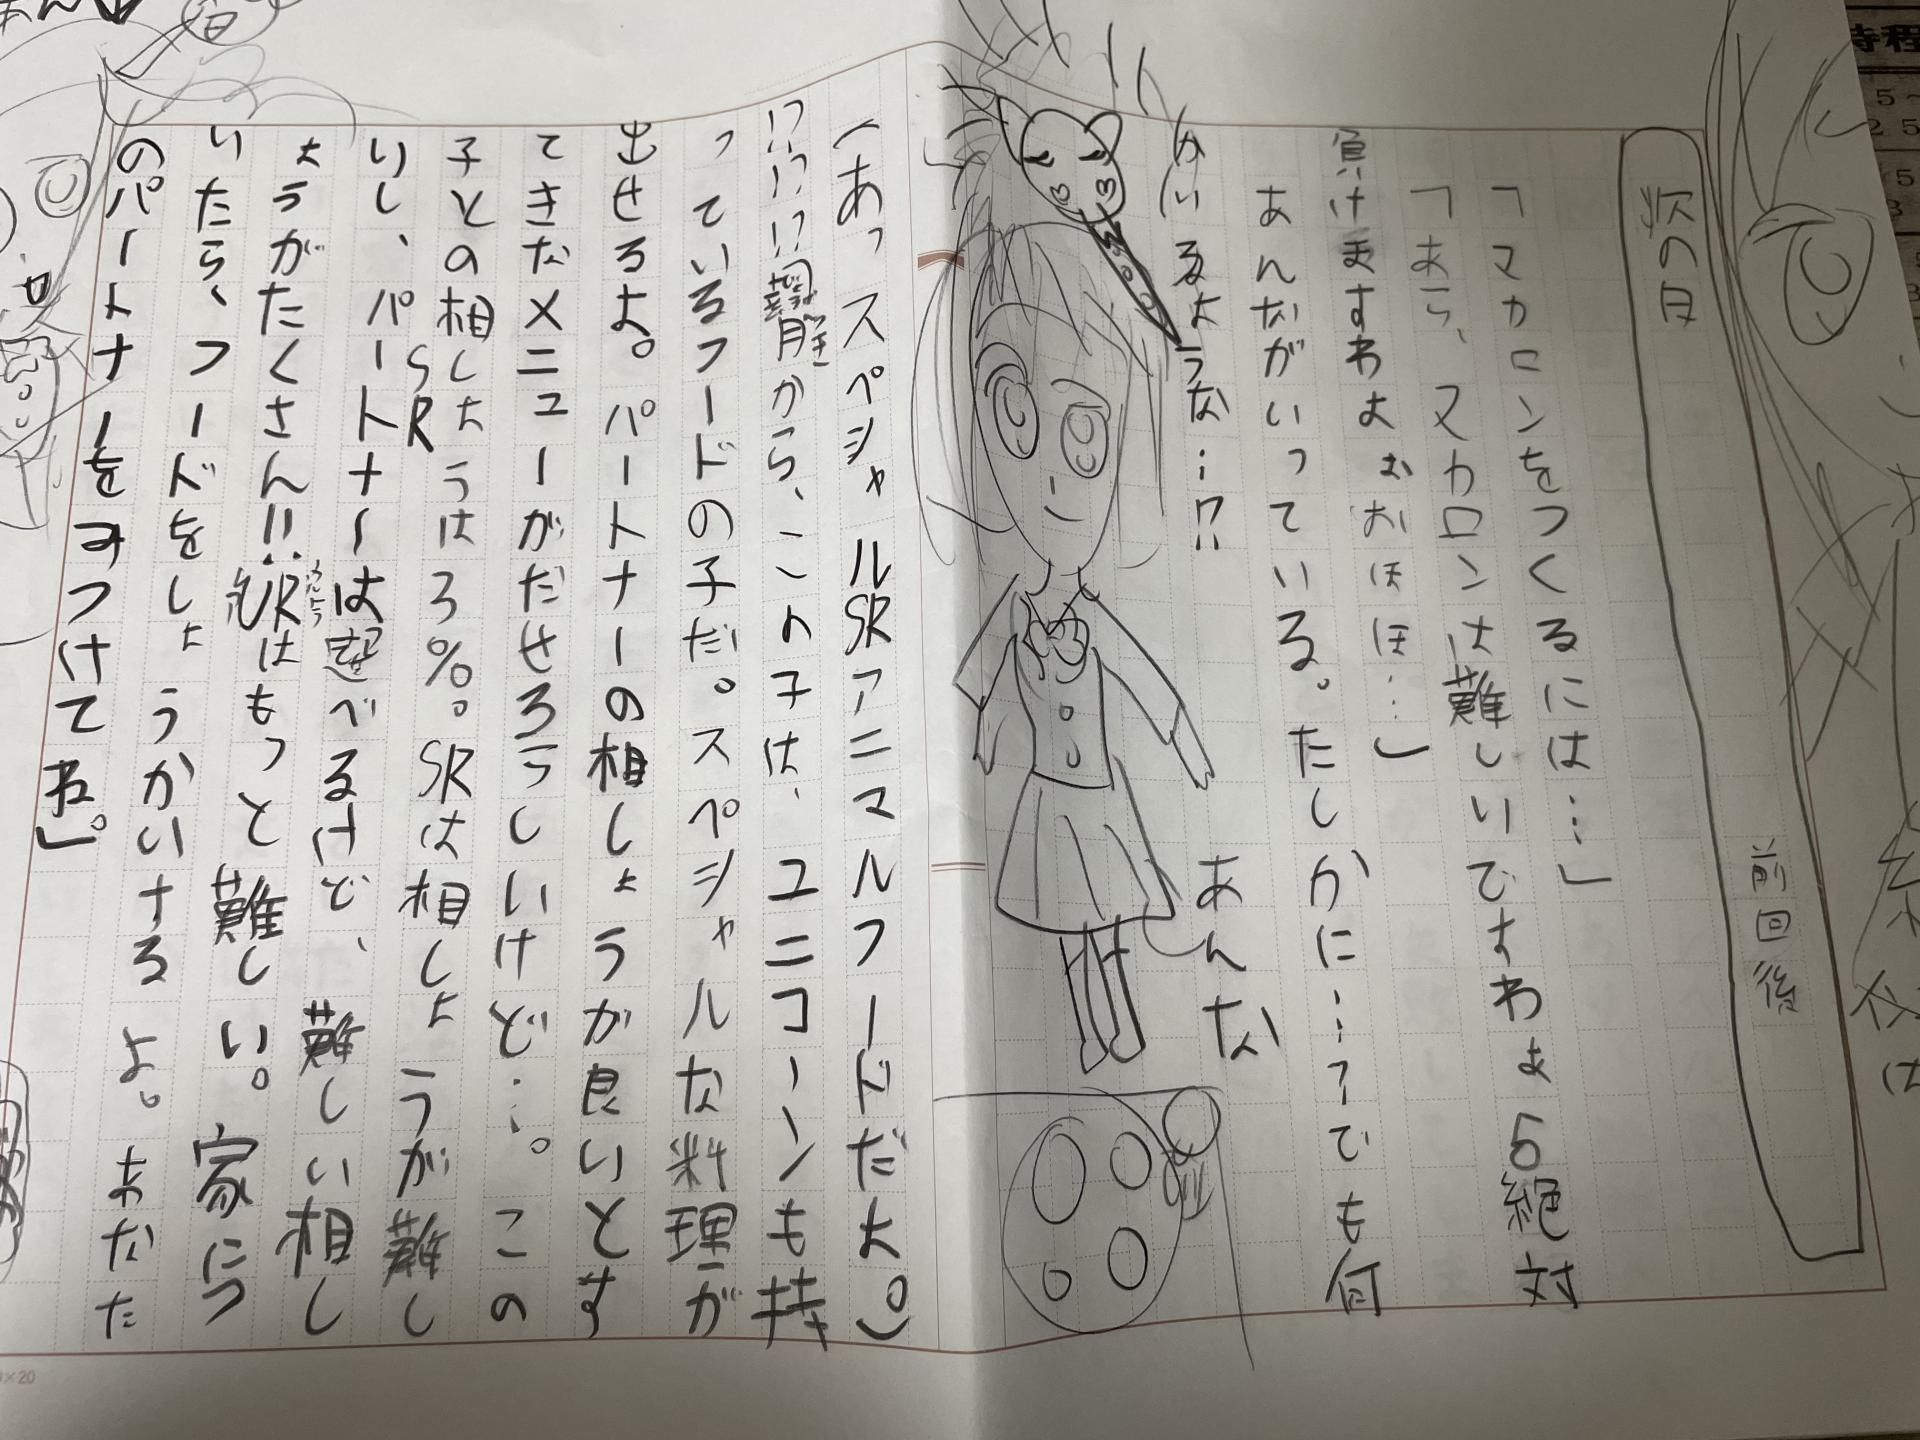 次の日
前回後
「マカロンをつくるには…」
「あら、マカロンは難しいですわょ5絶対
負けますわょおおほほ…」
あんながいっている。たしかに…?でも何
かいるような…!?
あんな
(あっスペシャルSRアニマルフードだよ。)
!?!?!?頭脳から、この子は、ユニコーンも持
っているフードの子だ。スペシャルな料理が
出せるよ。パートナーの相しょうが良いとす
てきなメニューがだせるらしいけど…。この
子との相しょうは3%。SRは相しょうが難し
SR
いし、パートナーは選べるけど、難しい相し
ょうがたくさん!!URはもっと難しい。家につ
いたら、フードをしょうかいするよ。あなた
のパートナーをみつけてね。」
×20